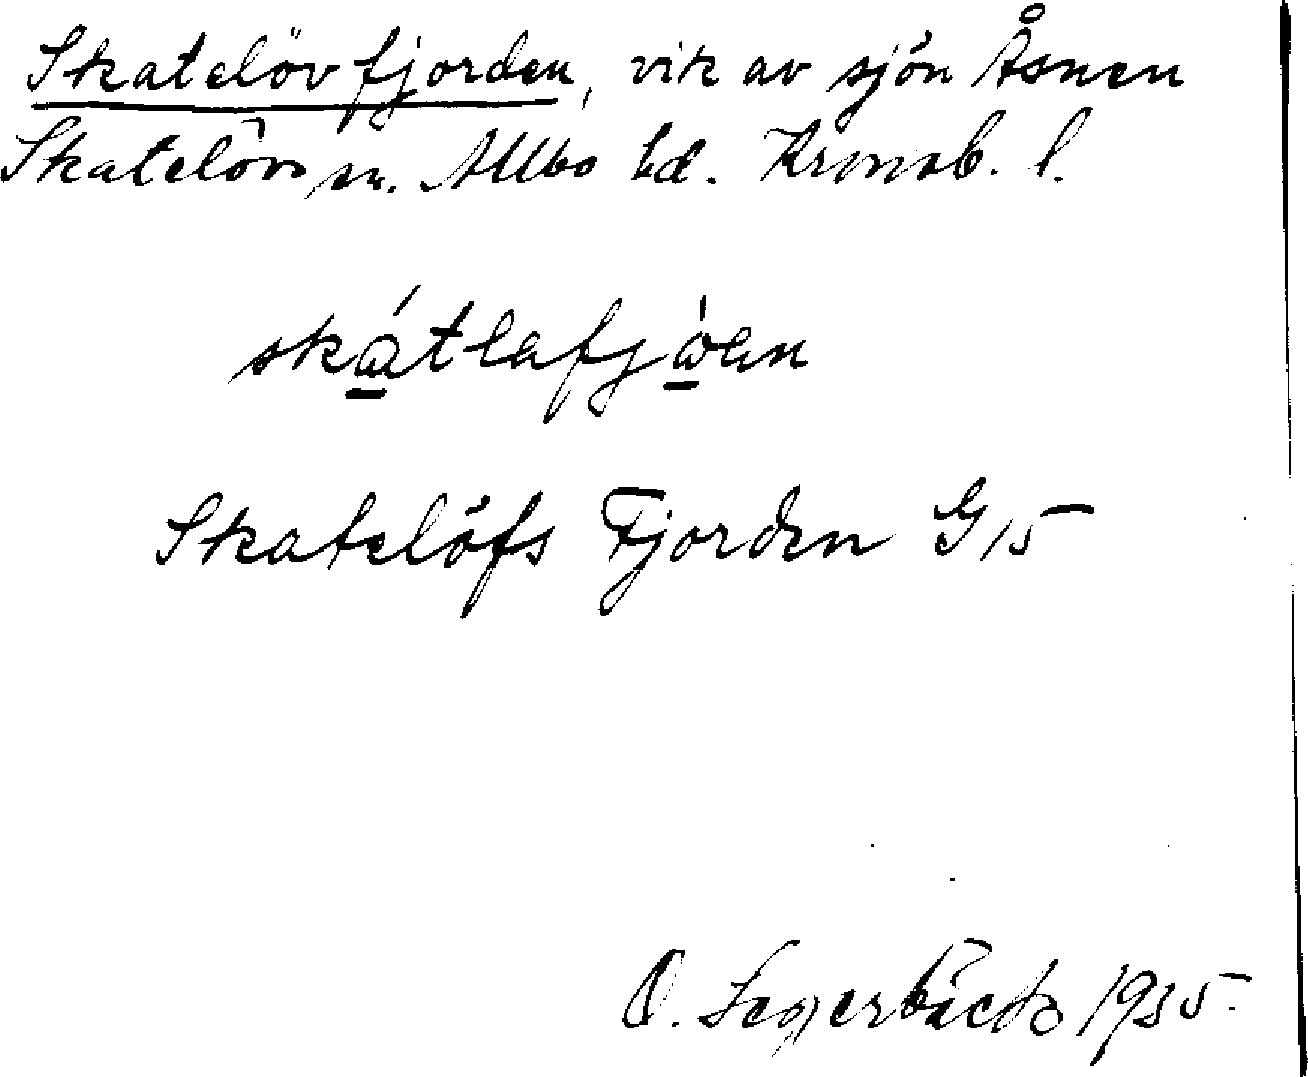 Skatelövfjorden, vik av sjön Åsnen
Skatelöv sn. Allbo hd. Kronob. l.
skátlafjòan
Skatelöfs Fjorden G 15
O. Segerbäck 1935.